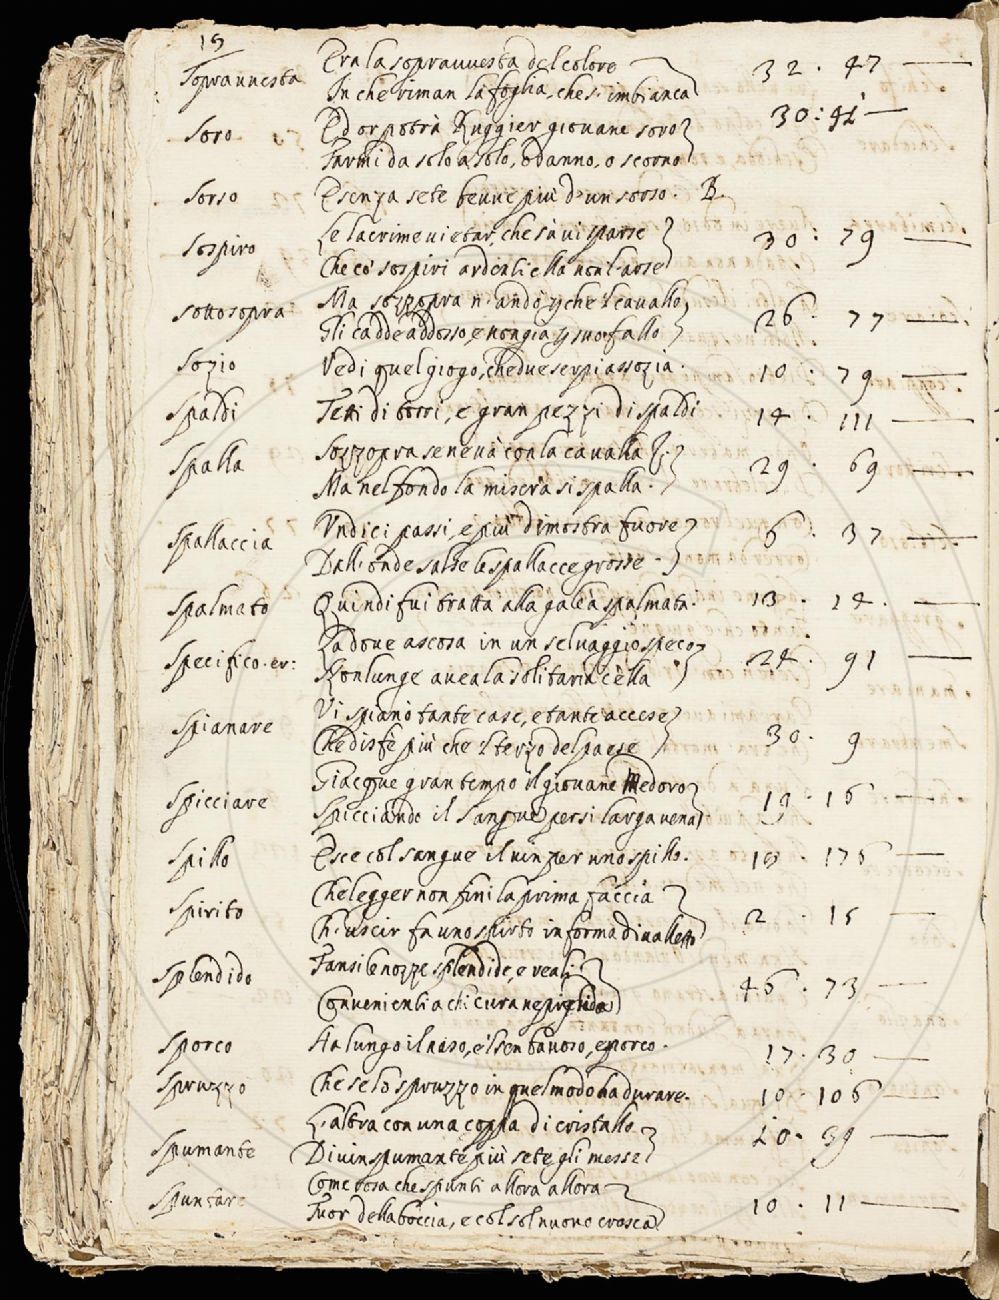 19
Sopravvesta Era la sopravvesta del colore 32 · 47
In che riman la foglia, che s'imbianca
Soro Ed or potrà Ruggier giovane soro 30 : 91
Farmi da solo a solo, o danno, o scorno
Sorso E senza sete bevve più d'un sorso. B
Sospiro Le lacrime vietar, che sù vi sparse 30 : 79
Che co' sospiri ardenti ella non l'arse
sottosopra Ma sozzopra n'andò, che 'l cavallo 26 · 77
Gli cadde addosso, e non già suo fallo
Sozio Vedi quel giogo, che due serpi assozia. 10 · 79
Spaldi Tetti di torri, e gran pezzi di spaldi 14 · 111
Spalla Sozzopra se ne và con la cavalla 29 · 69
Ma nel fondo la misera si spalla.
Spallaccia Undici passi, e più dimostra fuore 6 · 37
Dall'onde salse le spallacce grosse.
Spalmato Quindi fui tratta alla galea spalmata. 13 · 14.
Specifico. er: Là dove ascosa in un selvaggio speco 24 · 91
Non lunge avea la solitaria cella
Spianare Vi spianò tante case, e tante accese 30 · 9
Che disfè più che 'l terzo del paese
Spicciare Giacque gran tempo il giovane Medoro 19 · 16
Spicciando il sangue per si larga vena
Spillo Esce col sangue il vin per uno spillo. 18 · 176
Spirito Che legger non finì la prima faccia 2 · 15
Ch'uscir fa uno spirto in forma di valletto
Splendido Fansi le nozze splendide, e reali 46 · 73
Convenienti a chi cura ne piglia
Sporco Ha lungo il naso, e 'l sen bavoso, e sporco. 17 · 30
Spruzzo Che se lo spruzzo in quel modo ha durare. 10 · 106
L'altra con una coppa di cristallo 10 · 39
Spumante Di vin spumante più sete gli messe
Spuntare Come rosa che spunti allora allora 10 · 11
Fuor della boccia, e col sol nuovo cresca